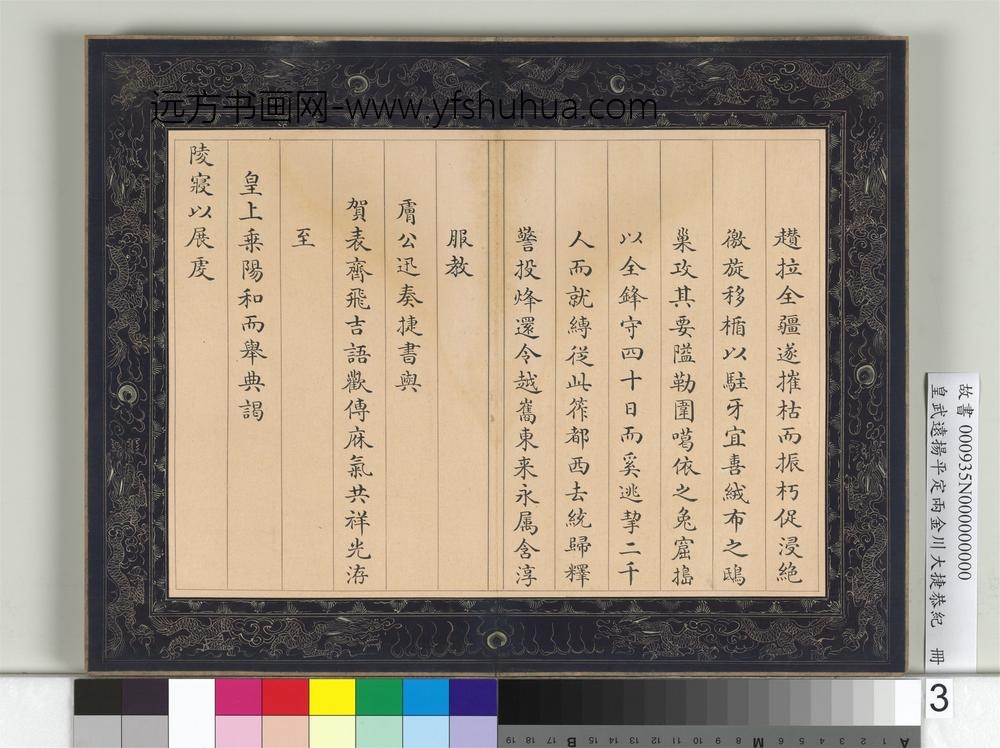 远方书画网-www.yfshuhua.com
趲拉全疆遂摧枯而振朽促浸絕
徼旋移楯以駐牙宜喜絨布之鴟
巢攻其要隘勒圍噶依之兔窟搗
以全鋒守四十日而奚逃挈二千
人而就縛從此筰都西去統歸釋
警投烽還令越嶲東来永属含淳
服教
膚公迅奏捷書與
賀表齊飛吉語歡傳庥氣共祥光洊
至
皇上乗陽和而舉典謁
陵寢以展虔
故書 000935N000000000
皇武遠揚平定兩金川大捷恭紀 冊
3